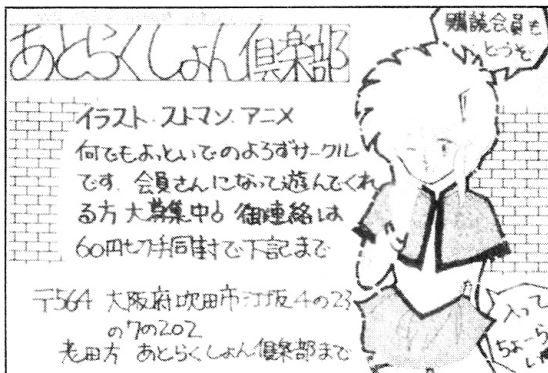 購読会員も
どうぞ
あとらくしょん倶楽部
イラスト ストマン アニメ
何でもよっといでのよろずサークル
です。会員さんになって遊んでくれ
る方 大募集中♂ 御連絡は
60円切手同封で下記まで
〒564 大阪府吹田市江坂4の23
の7の202
老田方 あとらくしょん倶楽部まで
入って
ちょーら